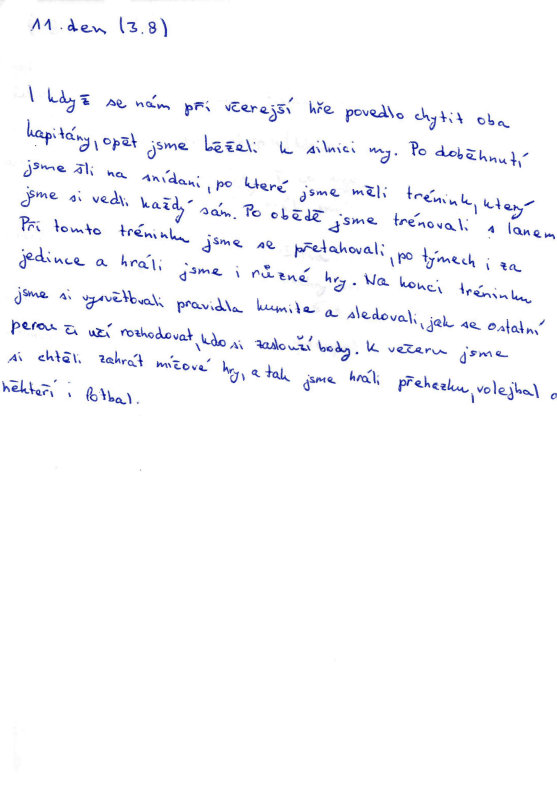 11. den (3.8)
I když se nám při včerejší hře povedlo chytit oba
kapitány, opět jsme běželi k silnici my. Po doběhnutí
jsme šli na snídani, po které jsme měli trénink, který
jsme si vedli každý sám. Po obědě jsme trénovali s lanem.
Při tomto tréninku jsme se přetahovali, po týmech i za
jedince a hráli jsme i různé hry. Na konci tréninku
jsme si vysvětlovali pravidla kumite a sledovali, jak se ostatní
perou či učí rozhodovat, kdo si zaslouží body. K večeru jsme
si chtěli zahrát míčové hry, a tak jsme hráli přehazku, volejbal a
někteří i fotbal.